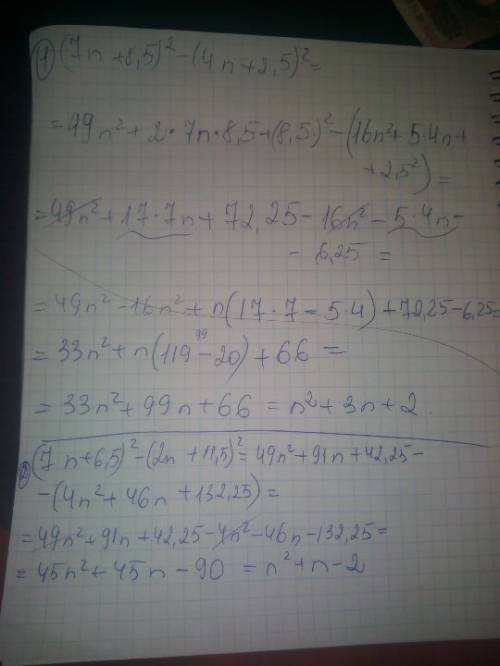 1) (7n + 8,5)² - (4n + 2,5)² =
= 49n² + 2·7n·8,5 + (8,5)² - (16n² + 5·4n +
+ 2,5²) =
= 49n² + 17·7n + 72,25 - 16n² - 5·4n -
- 6,25 =
= 49n² - 16n² + n(17·7 - 5·4) + 72,25 - 6,25 =
99
= 33n² + n(119 - 20) + 66 =
= 33n² + 99n + 66 = n² + 3n + 2.
2) (7n + 6,5)² - (2n + 11,5)² = 49n² + 91n + 42,25 -
- (4n² + 46n + 132,25) =
= 49n² + 91n + 42,25 - 4n² - 46n - 132,25 =
= 45n² + 45n - 90 = n² + n - 2